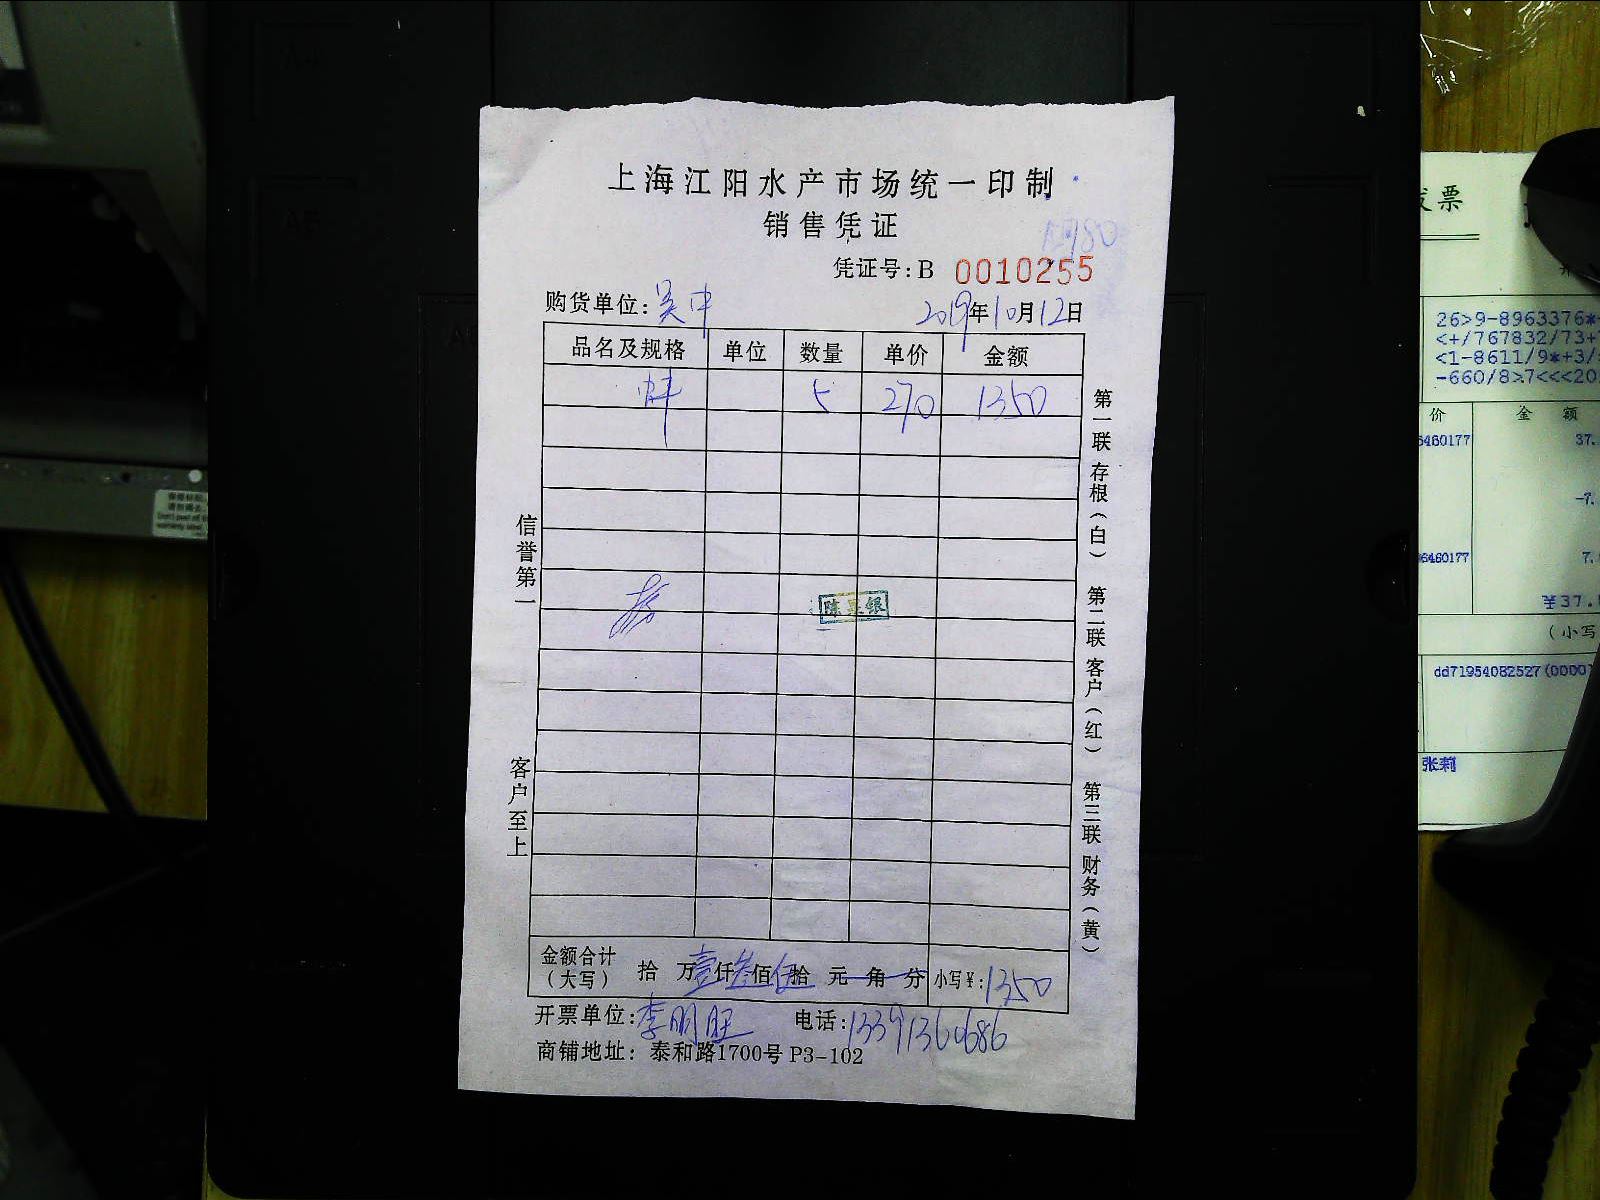 上海江阳水产市场统一印制
销售凭证
凭证号:B 0010255
购货单位:吴中 2019年10月12日
品名及规格 单位 数量 单价 金额
5 270 1350
信誉第一
客户至上
第一联 存根(白) 第二联 客户(红) 第三联 财务(黄)
陈 银
金额合计(大写) 拾 万壹仟叁佰伍拾 元 角 分 小写¥:1350
开票单位:李明旺 电话:13391360686
商铺地址: 泰和路1700号 P3-102
发票
26>9-8963376*
<+/767832/73+
<1-8611/9*+3/
-660/8>7<<<20
价 金 额
6460177 37.
-7.
6460177 7.
¥37.
(小写
dd71954082527(0000
张莉